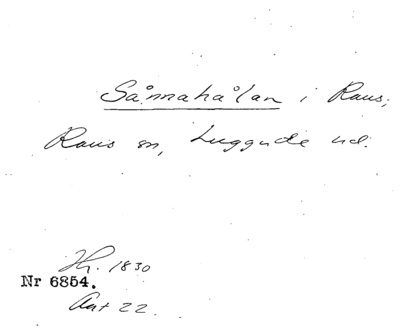 Sånnahålan i Raus,
Raus sn, Luggude hd.
1830
Nr 6854.
Ant 22.